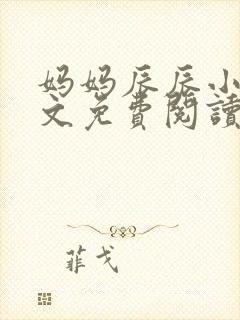 妈妈辰辰小
文免費閱讀
菲戈